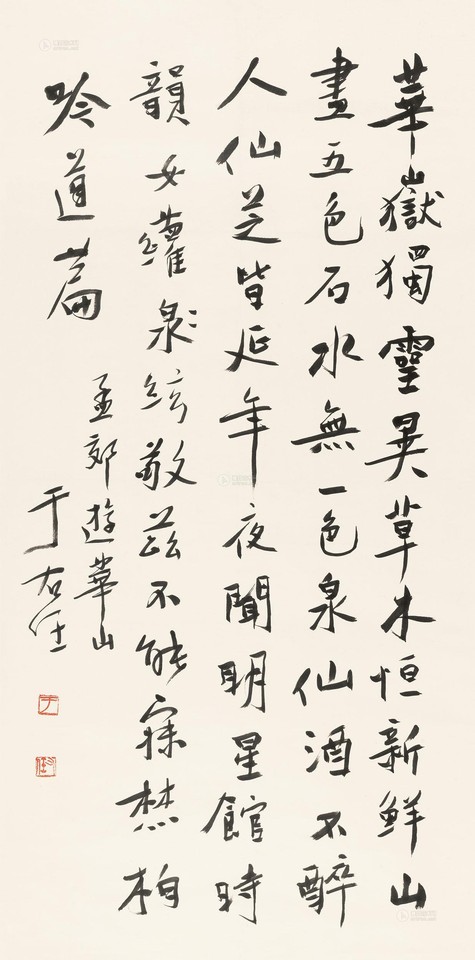 華嶽獨靈異草木恒新鮮山
盡五色石水無一色泉仙酒不醉
人仙芝皆延年夜聞明星館時
韻女蘿泉絃敬茲不能寐焚柏
吟道篇
孟郊遊華山
于右任